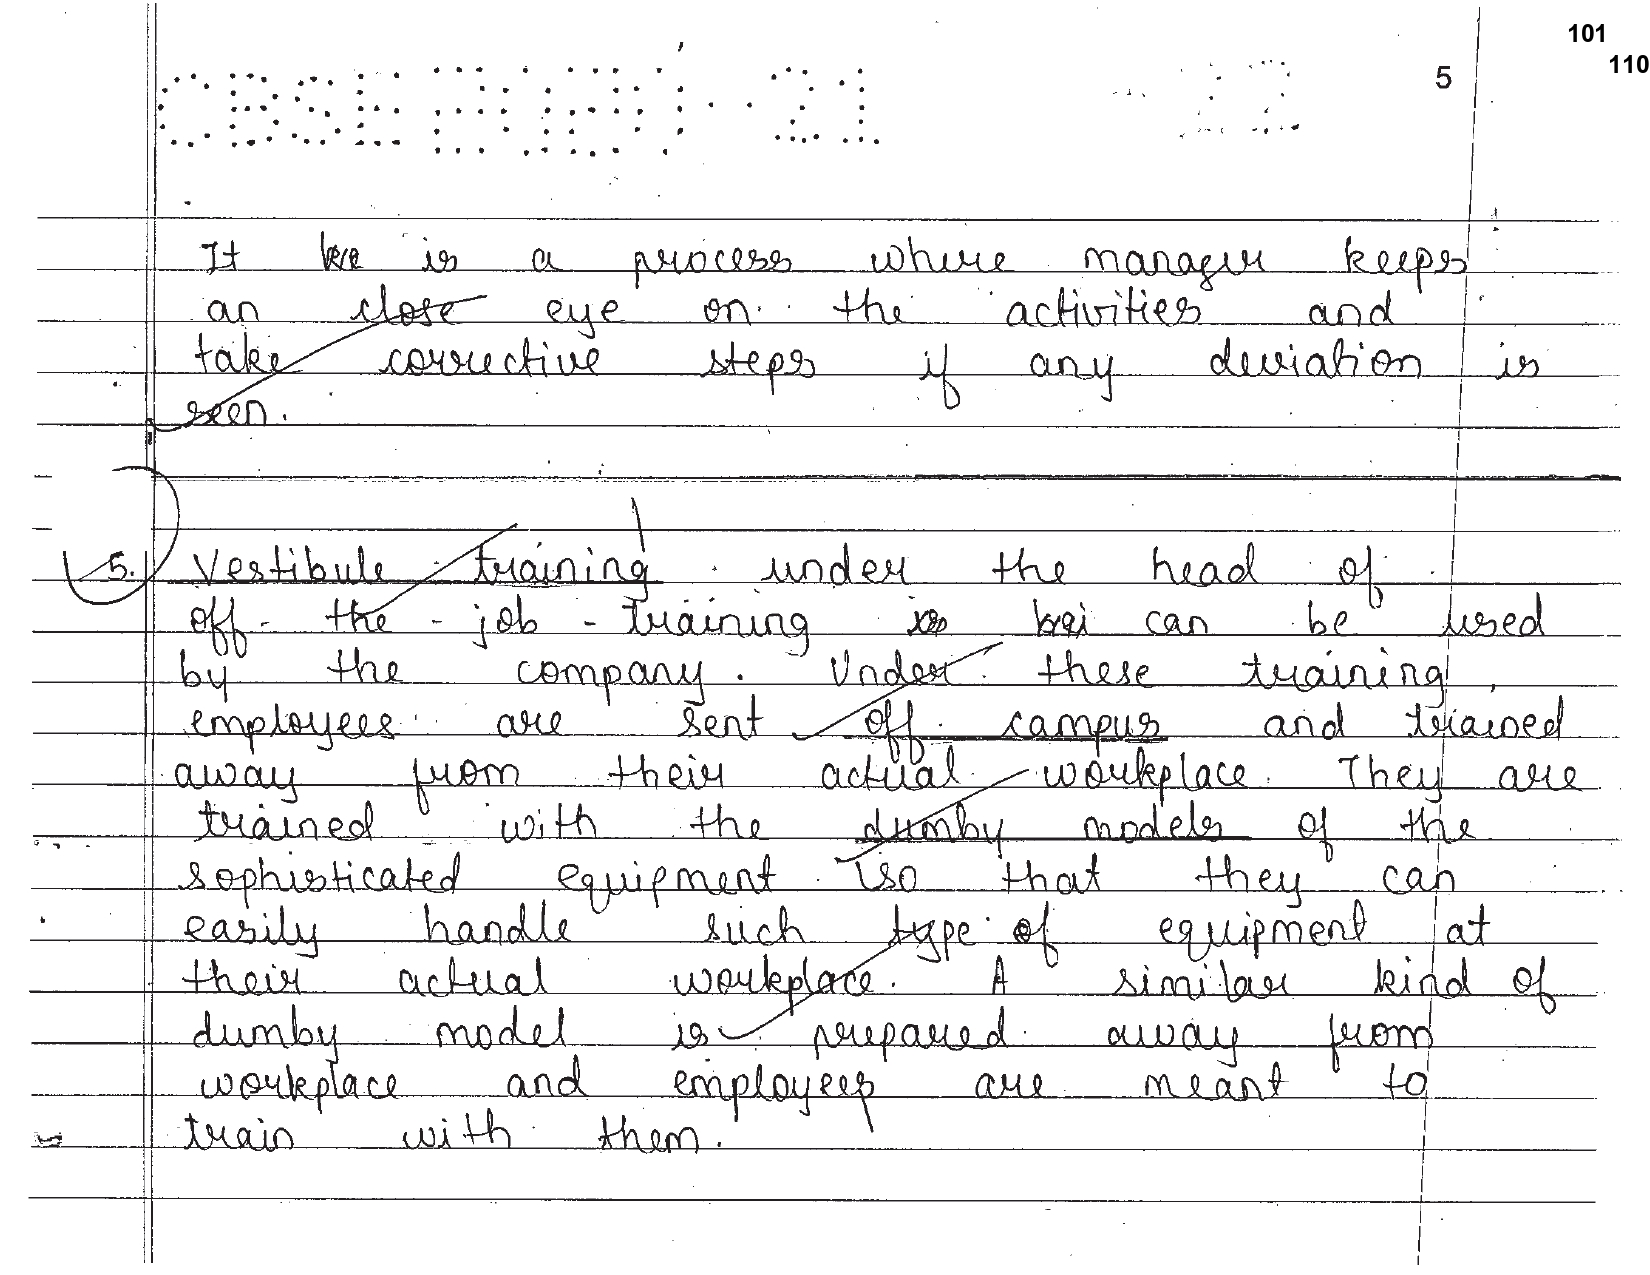 101
110
5
It is a process where manager keeps
an close eye on the activities and
take corrective steps if any deviation is
seen.
5. Vestibule training under the head of
off - the - job - training can be used
by the company. Under these training,
employees are sent off campus and trained
away from their actual workplace. They are
trained with the dumby models of the
sophisticated equipment so that they can
easily handle such type of equipment at
their actual workplace. A similar kind of
dumby model is prepared away from
workplace and employees are meant to
train with them.